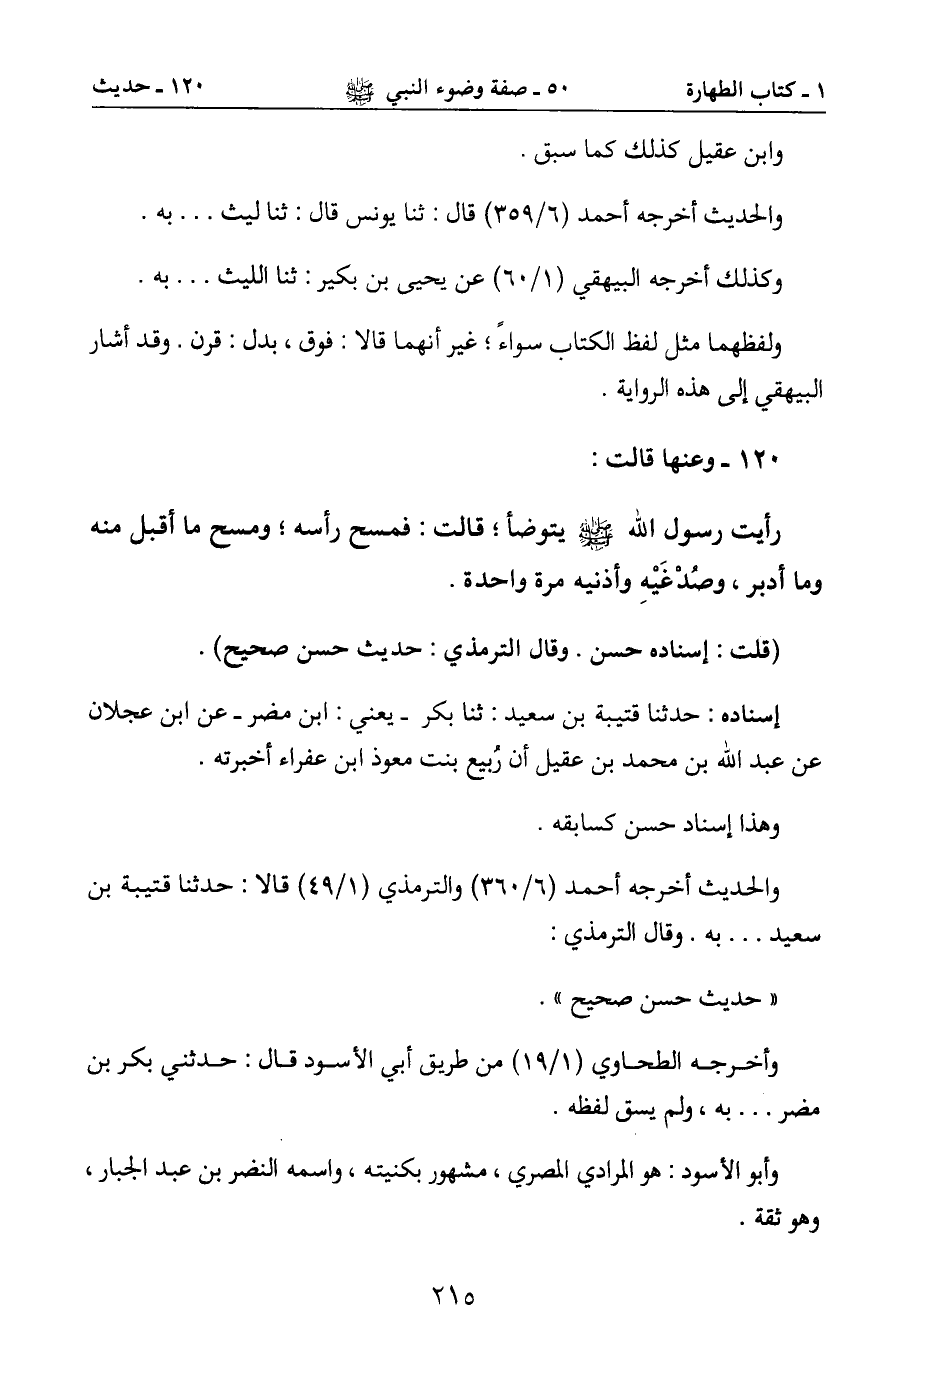 ١ ـ كتاب الطهارة ٥٠ ـ صفة وضوء النبي ﷺ ١٢٠ ـ حديث
وابن عقيل كذلك كما سبق .
والحديث أخرجه أحمد (٣٥٩/٦) قال : ثنا يونس قال : ثنا ليث . . . به .
وكذلك أخرجه البيهقي (٦٠/١) عن يحيى بن بكير : ثنا الليث . . . به .
ولفظهما مثل لفظ الكتاب سواءً ؛ غير أنهما قالا : فوق ، بدل : قرن . وقد أشار
البيهقي إلى هذه الرواية .
١٢٠ ـ وعنها قالت :
رأيت رسول الله ﷺ يتوضأ ؛ قالت : فمسح رأسه ؛ ومسح ما أقبل منه
وما أدبر ، وصُدْغَيْهِ وأذنيه مرة واحدة .
(قلت : إسناده حسن . وقال الترمذي : حديث حسن صحيح) .
إسناده : حدثنا قتيبة بن سعيد : ثنا بكر ـ يعني : ابن مضر ـ عن ابن عجلان
عن عبد الله بن محمد بن عقيل أن رُبيع بنت معوذ ابن عفراء أخبرته .
وهذا إسناد حسن كسابقه .
والحديث أخرجه أحمد (٣٦٠/٦) والترمذي (٤٩/١) قالا : حدثنا قتيبة بن
سعيد . . . به . وقال الترمذي :
« حديث حسن صحيح » .
وأخـرجـه الطحـاوي (١٩/١) من طريق أبي الأسـود قـال : حـدثني بكر بن
مضر . . . به ، ولم يسق لفظه .
وأبو الأسود : هو المرادي المصري ، مشهور بكنيته ، واسمه النضر بن عبد الجبار ،
وهو ثقة .
٢١٥